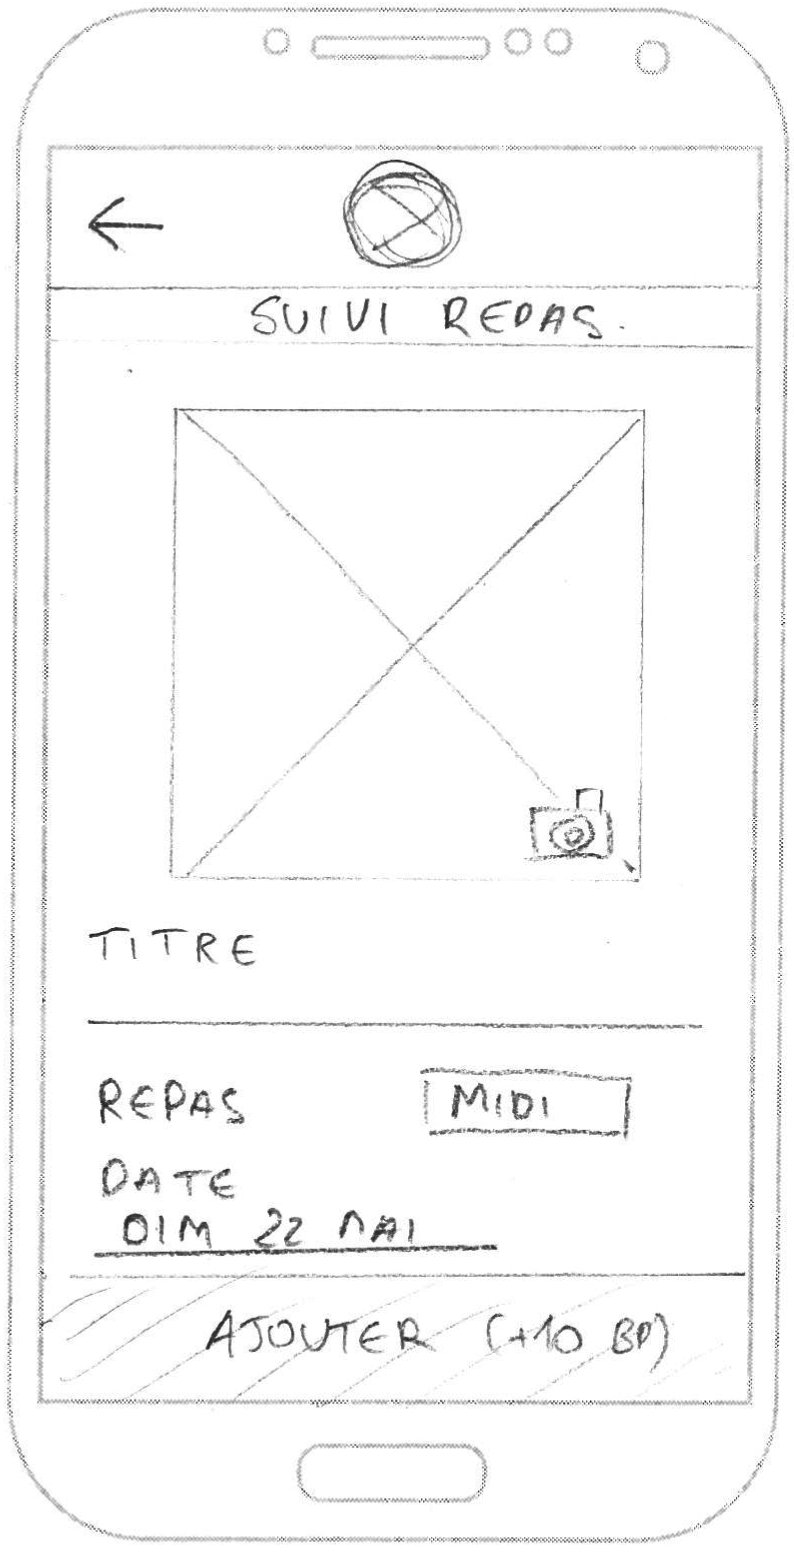 SUIVI REPAS.
TITRE
REPAS MIDI
DATE
DIM 22 MAI
AJOUTER (+10 BP)